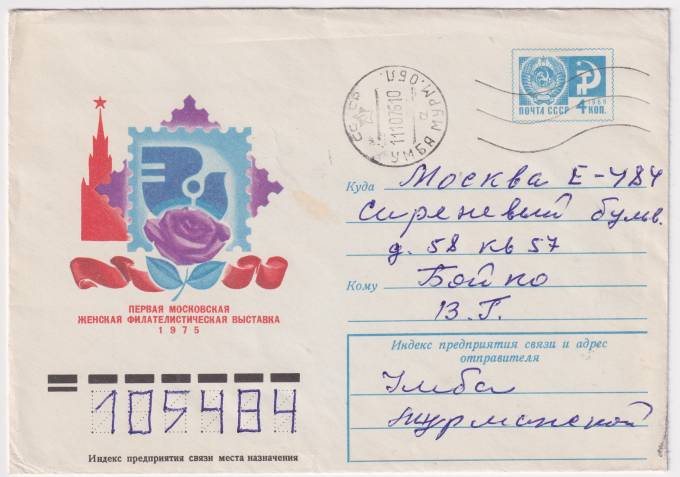 ПОЧТА СССР
4 КОП.
1966
СССР
МУРМ. ОБЛ.
УМБА
Куда Москва Е-484
Сиреневый бульв.
д. 58 кв 57
Кому Бойко
В. Г.
ПЕРВАЯ МОСКОВСКАЯ
ЖЕНСКАЯ ФИЛАТЕЛИСТИЧЕСКАЯ ВЫСТАВКА
1975
Индекс предприятия связи и адрес
отправителя
Умба
Мурманской
105484
Индекс предприятия связи места назначения